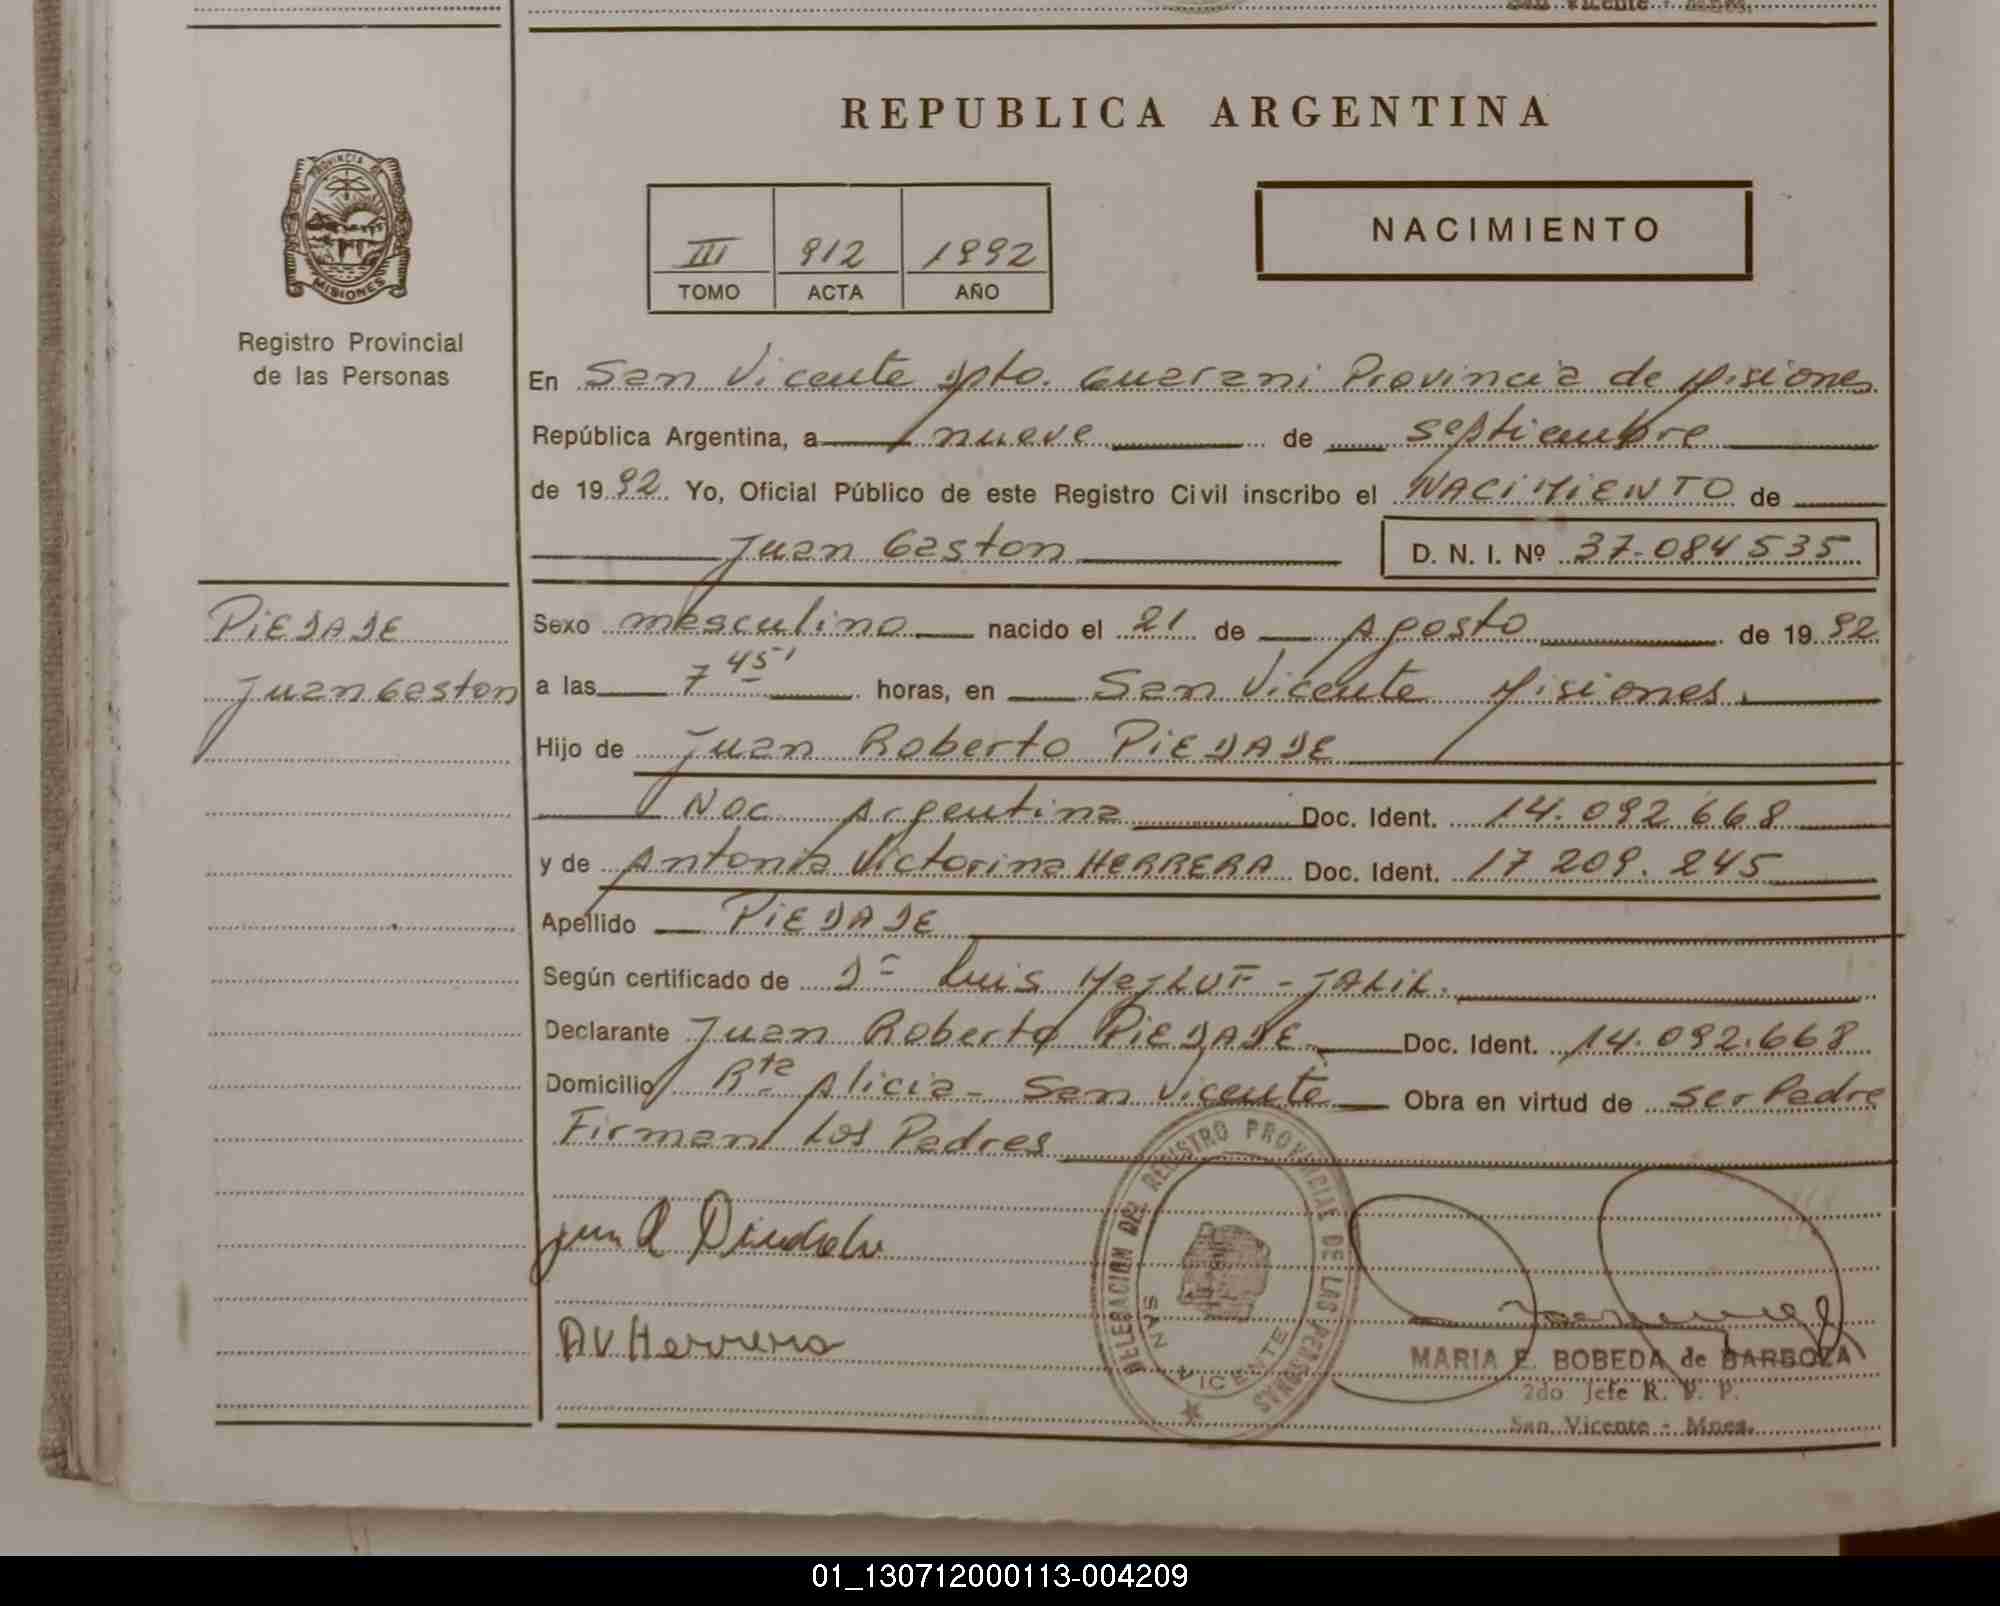 San Vicente - Mnes.
REPUBLICA ARGENTINA
PROVINCIA DE
MISIONES
Registro Provincial
de las Personas
III 912 1992
TOMO ACTA AÑO
NACIMIENTO
En San Vicente Dpto. Guarani Provincia de Misiones
República Argentina, a nueve de septiembre
de 1992 Yo, Oficial Público de este Registro Civil inscribo el NACIMIENTO de
Juan Gaston D. N. I. Nº 37.084535
PIEDADE
Juan Gaston
Sexo masculino nacido el 21 de Agosto de 1992
a las 7 45' horas, en San Vicente Misiones.
Hijo de Juan Roberto PIEDADE
Nac. Argentina Doc. Ident. 14.092668
y de Antonia Victorina HERRERA Doc. Ident. 17 209.245
Apellido PIEDADE
Según certificado de Dr Luis - JALIL.
Declarante Juan Roberto PIEDADE Doc. Ident. 14.092.668
Domicilio Rta Alicia - San Vicente Obra en virtud de ser Padre
Firman Los Padres
AV Herrera
DELEGACION DEL REGISTRO PROVINCIAL DE LAS PERSONAS
SAN VICENTE
MARIA E. BOBEDA de BARBOZA
2do Jefe R. P. P.
San Vicente - Mnes.
01_130712000113-004209